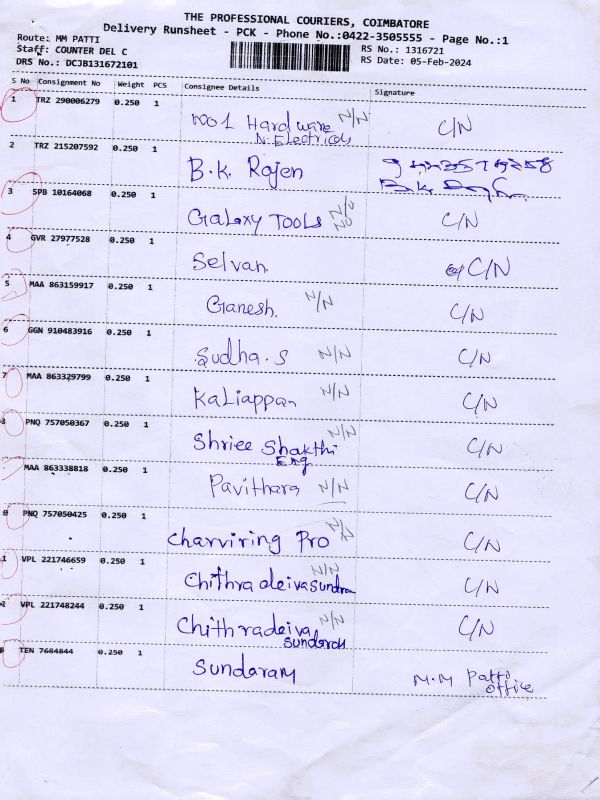 THE PROFESSIONAL COURIERS, COIMBATORE
Delivery Runsheet - PCK - Phone No.:0422-3505555 - Page No.:1
Route: MM PATTI
RS No.: 1316721
Staff: COUNTER DEL C
RS Date: 05-Feb-2024
DRS No.: DCJB131672101
S No Consignment No Weight PCS Consignee Details Signature
1 TRZ 290006279 0.250 1
No 1 Hardware N/N C/N
N. Electricals
2 TRZ 215207592 0.250 1
B.K. Rajen
3 SPB 10164068 0.250 1
Galaxy Tools C/N
4 GVR 27977528 0.250 1
Selvan C/N
5 MAA 863159917 0.250 1
Ganesh. N/N C/N
6 GGN 910483916 0.250 1
Sudha.S N/N C/N
7 MAA 863329799 0.250 1
Kaliappan N/N C/N
PNQ 757050367 0.250 1
Shriee Shakthi N/N C/N
Eng
MAA 863338818 0.250 1
Pavithara N/N C/N
0 PNQ 757050425 0.250 1
Charviring Pro N/N C/N
1 VPL 221746659 0.250 1
Chithra deivasundram N/N C/N
2 VPL 221748244 0.250 1
Chithradeiva N/N C/N
Sundaram
TEN 7684844 0.250 1
Sundaram M.M Patti
office